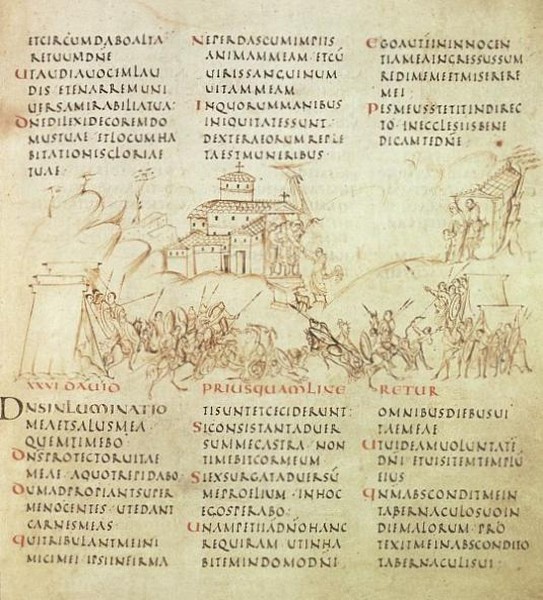 ETCIRCUMDABOALTA
RETUUMDNE
UTAUDIAUOCEMLAU
DIS ETENARREMUNI
UERSAMIRABILIATUA:
DNEDILEXIDECOREMDO
MUSTUAE ETLOCUMHA
BITATIONISGLORIAE
TUAE·
NEPERDASCUMIMPIIS
ANIMAMMEAM ETCŪ
UIRISSANGUINUM
UITAMMEAM
INQUORUMMANIBUS
INIQUITATESSUNT·
DEXTERAEORUMREPLE
TAESTMUNERIBUS·
EGOAUTĒININNOCEN
TIAMEAINGRESSUSSUM
REDIMEMEETMISERERE
MEI·
PESMEUSSTETITINDIREC
TO INECCLESIISBENE
DICAMTEDNĒ·
XXVI DAUID PRIUSQUAMLINE RETUR
DNSINLUMINATIO
MEAETSALUSMEA
QUEMTIMEBO
DNSPROTECTORUITAE
MEAE AQUOTREPIDABO
DUMADPROPIANTSUPER
MENOCENTES UTEDANT
CARNESMEAS
QUITRIBULANTMEINI
MICIMEI IPSIINFIRMA
TISUNTETCECIDERUNT:
SICONSISTANTADUER
SUMMECASTRA NON
TIMEBITCORMEUM
SIEXSURGATADUERSŪ
MEPROELIUM INHOC
EGOSPERABO:
UNAMPETIIADNOHANC
REQUIRAM UTINHA
BITEMINDOMODNI
OMNIBUSDIEBUSUI
TAEMEAE
UTUIDEAMUOLUNTATĒ
DNI ETUISITEMTEMPLŪ
EIUS
QNMABSCONDITMEIN
TABERNACULOSUOIN
DIEMALORUM PRO
TEXITMEINABSCONDITO
TABERNACULISUI·